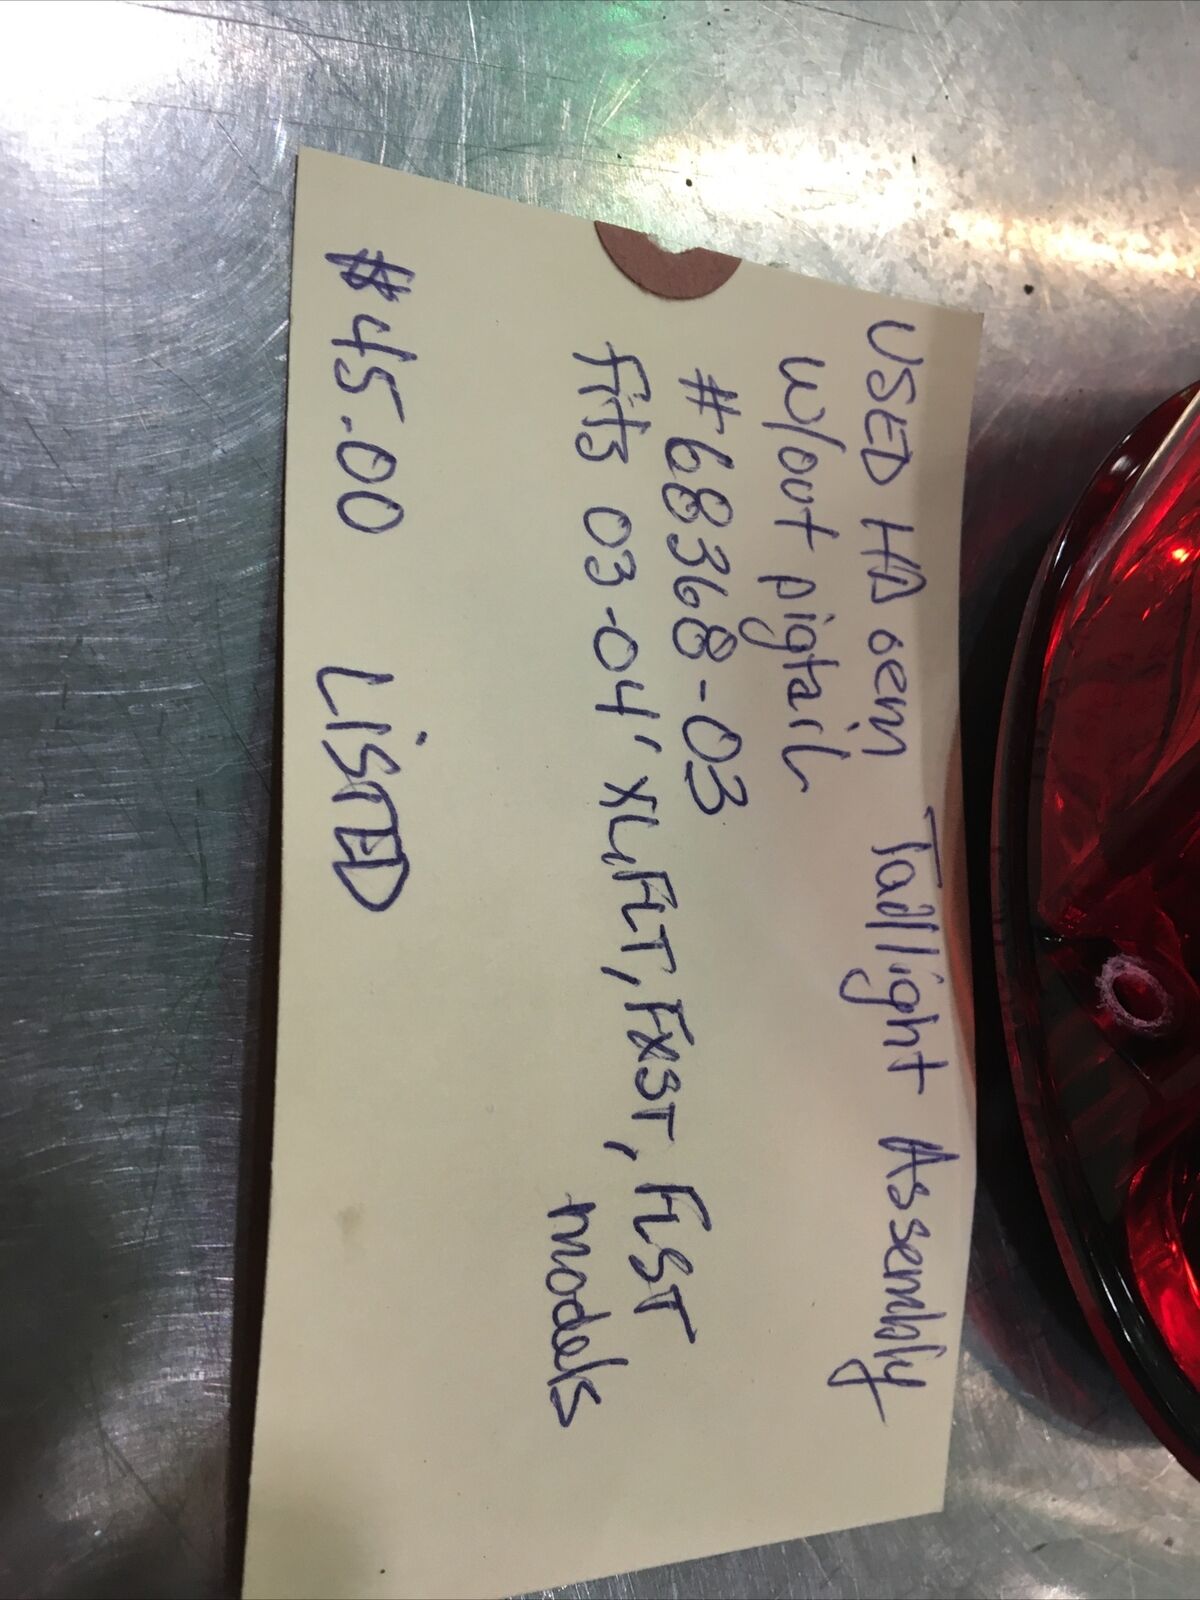 USED HD oem Taillight Assembly
w/out pigtail
#68368-03
fits 03-04' XL, FLT, FXST, FLST
models
$45.00 LISTED